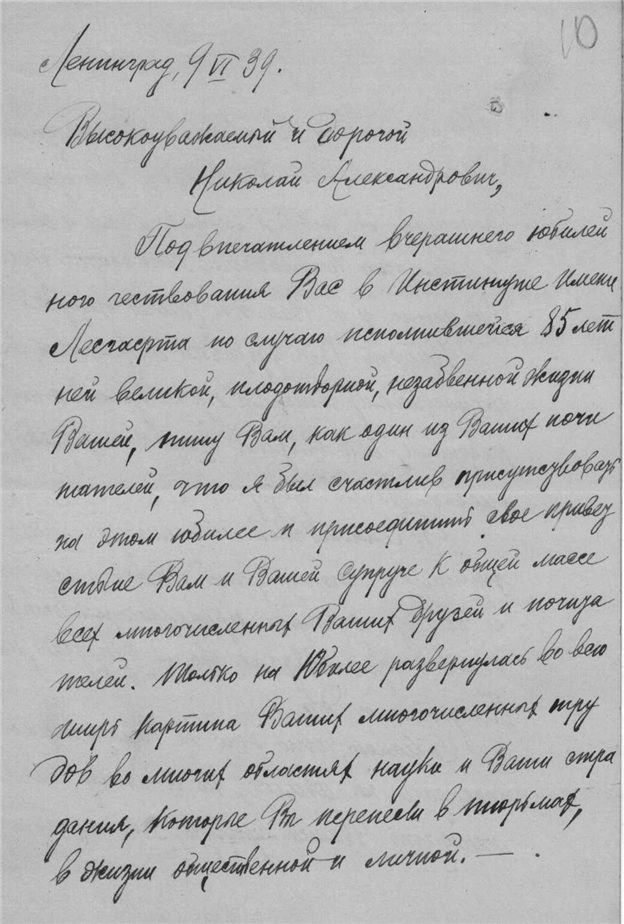 10
Ленинград, 9 VI 39.
Высокоуважаемый и дорогой
Николай Александрович,
Под впечатлением вчерашнего юбилей
ного чествования Вас в Институте Имени
Лесгафта по случаю исполнившейся 85 лет
ней великой, плодотворной, незабвенной жизни
Вашей, пишу Вам, как один из Ваших почи
тателей, что я был счастлив присутствовать
на этом юбилее и присоединить свое привет
ствие Вам и Вашей супруге к общей массе
всех многочисленных Ваших друзей и почита
телей. Только на Юбилее развернулась во всю
ширь картина Ваших многочисленных тру
дов во многих областях науки и Ваши стра
дания, которые Вы перенесли в тюрьмах,
в жизни общественной и личной. —